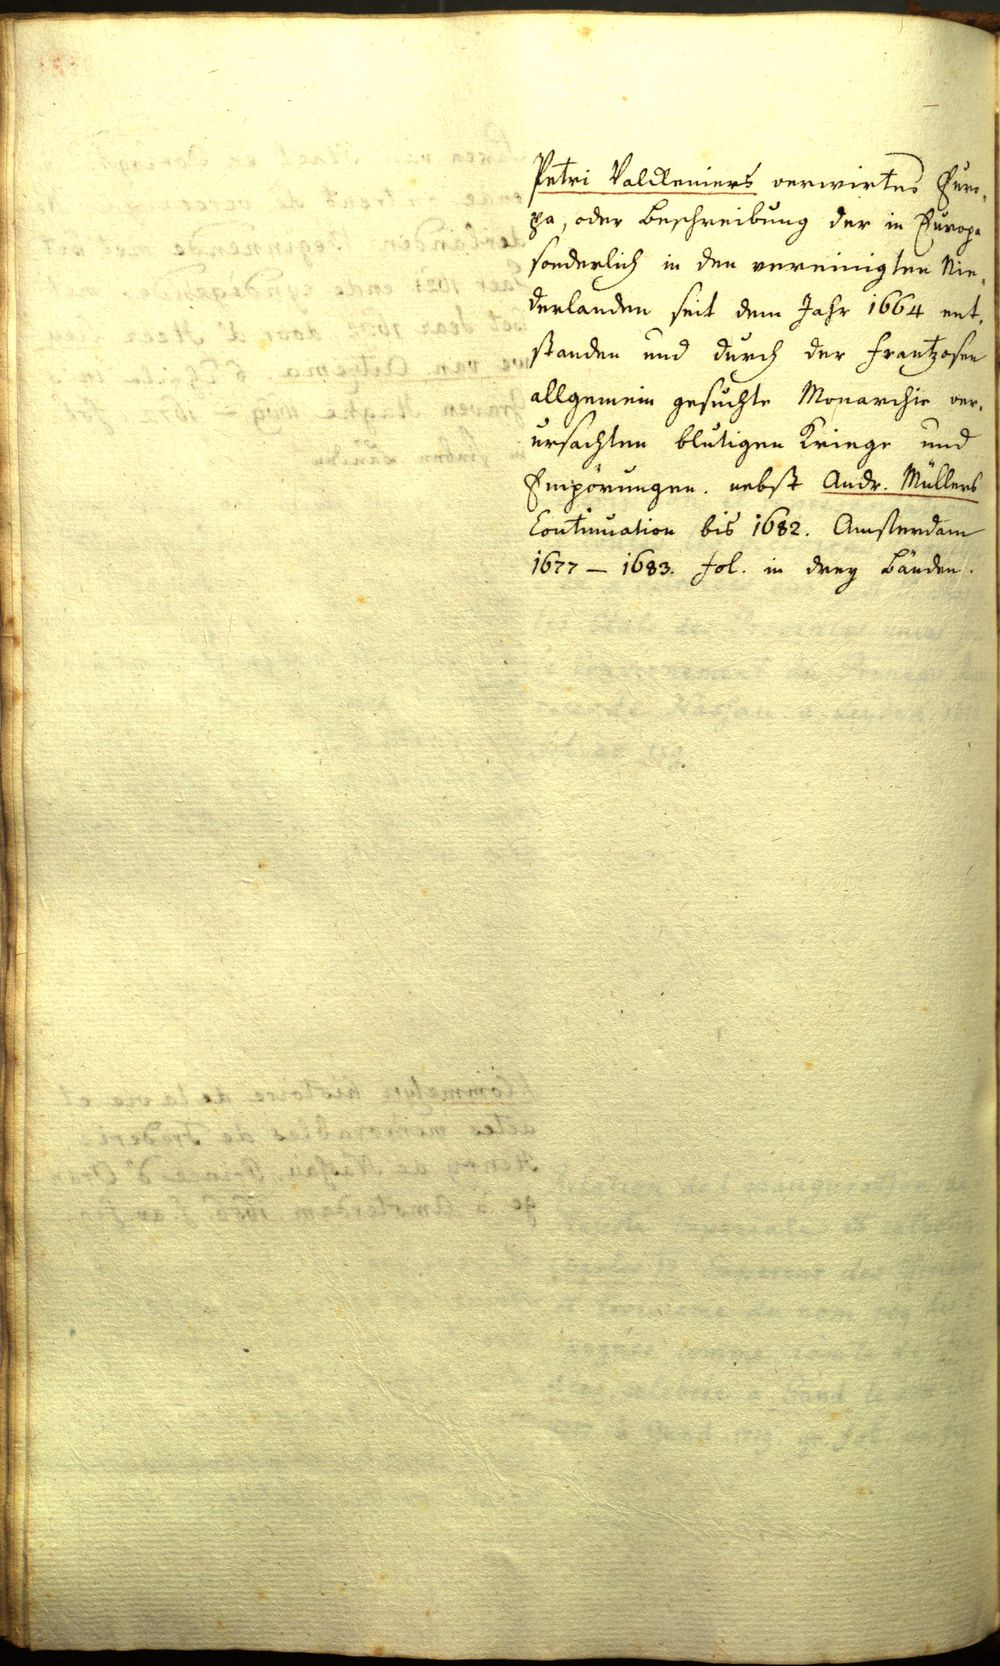 Petri Valckeniers verwirtes Euro-
pa, oder Beschreibung der in Europa
sonderlich in den vereinigten Nie-
derlanden seit dem Jahr 1664 ent-
standen und durch der Frantzosen
allgemein gesuchte Monarchie ver-
ursachten blutigen Kriege und
Empörungen. nebst Andr. Müllers
Continuation bis 1682. Amsterdam
1677 – 1683. fol. in drey Bänden.